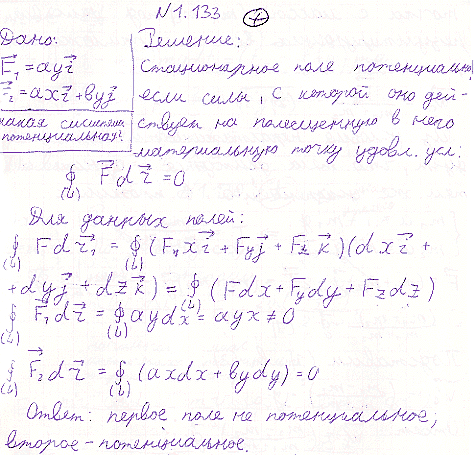 N 1.133 (+)
Дано:
F⃗₁ = ayi⃗
F⃗₂ = axi⃗ + вyj⃗
какая система
потенциальная?
Решение:
Стационарное поле потенциально,
если силы, с которой оно дей-
ствует на помещенную в него
материальную точку удовл. усл:
∮(L) F⃗dr⃗ = 0
Для данных полей:
∮(L) Fdr⃗₁ = ∮(L) (Fₓxi⃗ + Fyj⃗ + F_z k⃗)(dxi⃗ +
+ dyj⃗ + dzk⃗) = ∮(L) (Fdx + F_y dy + F_z dz)
∮(L) F⃗₁dr⃗ = ∮(L) aydx = ayx ≠ 0
∮(L) F⃗₂dr⃗ = ∮(L) (axdx + вydy) = 0
Ответ: первое поле не потенциальное,
второе – потенциальное.